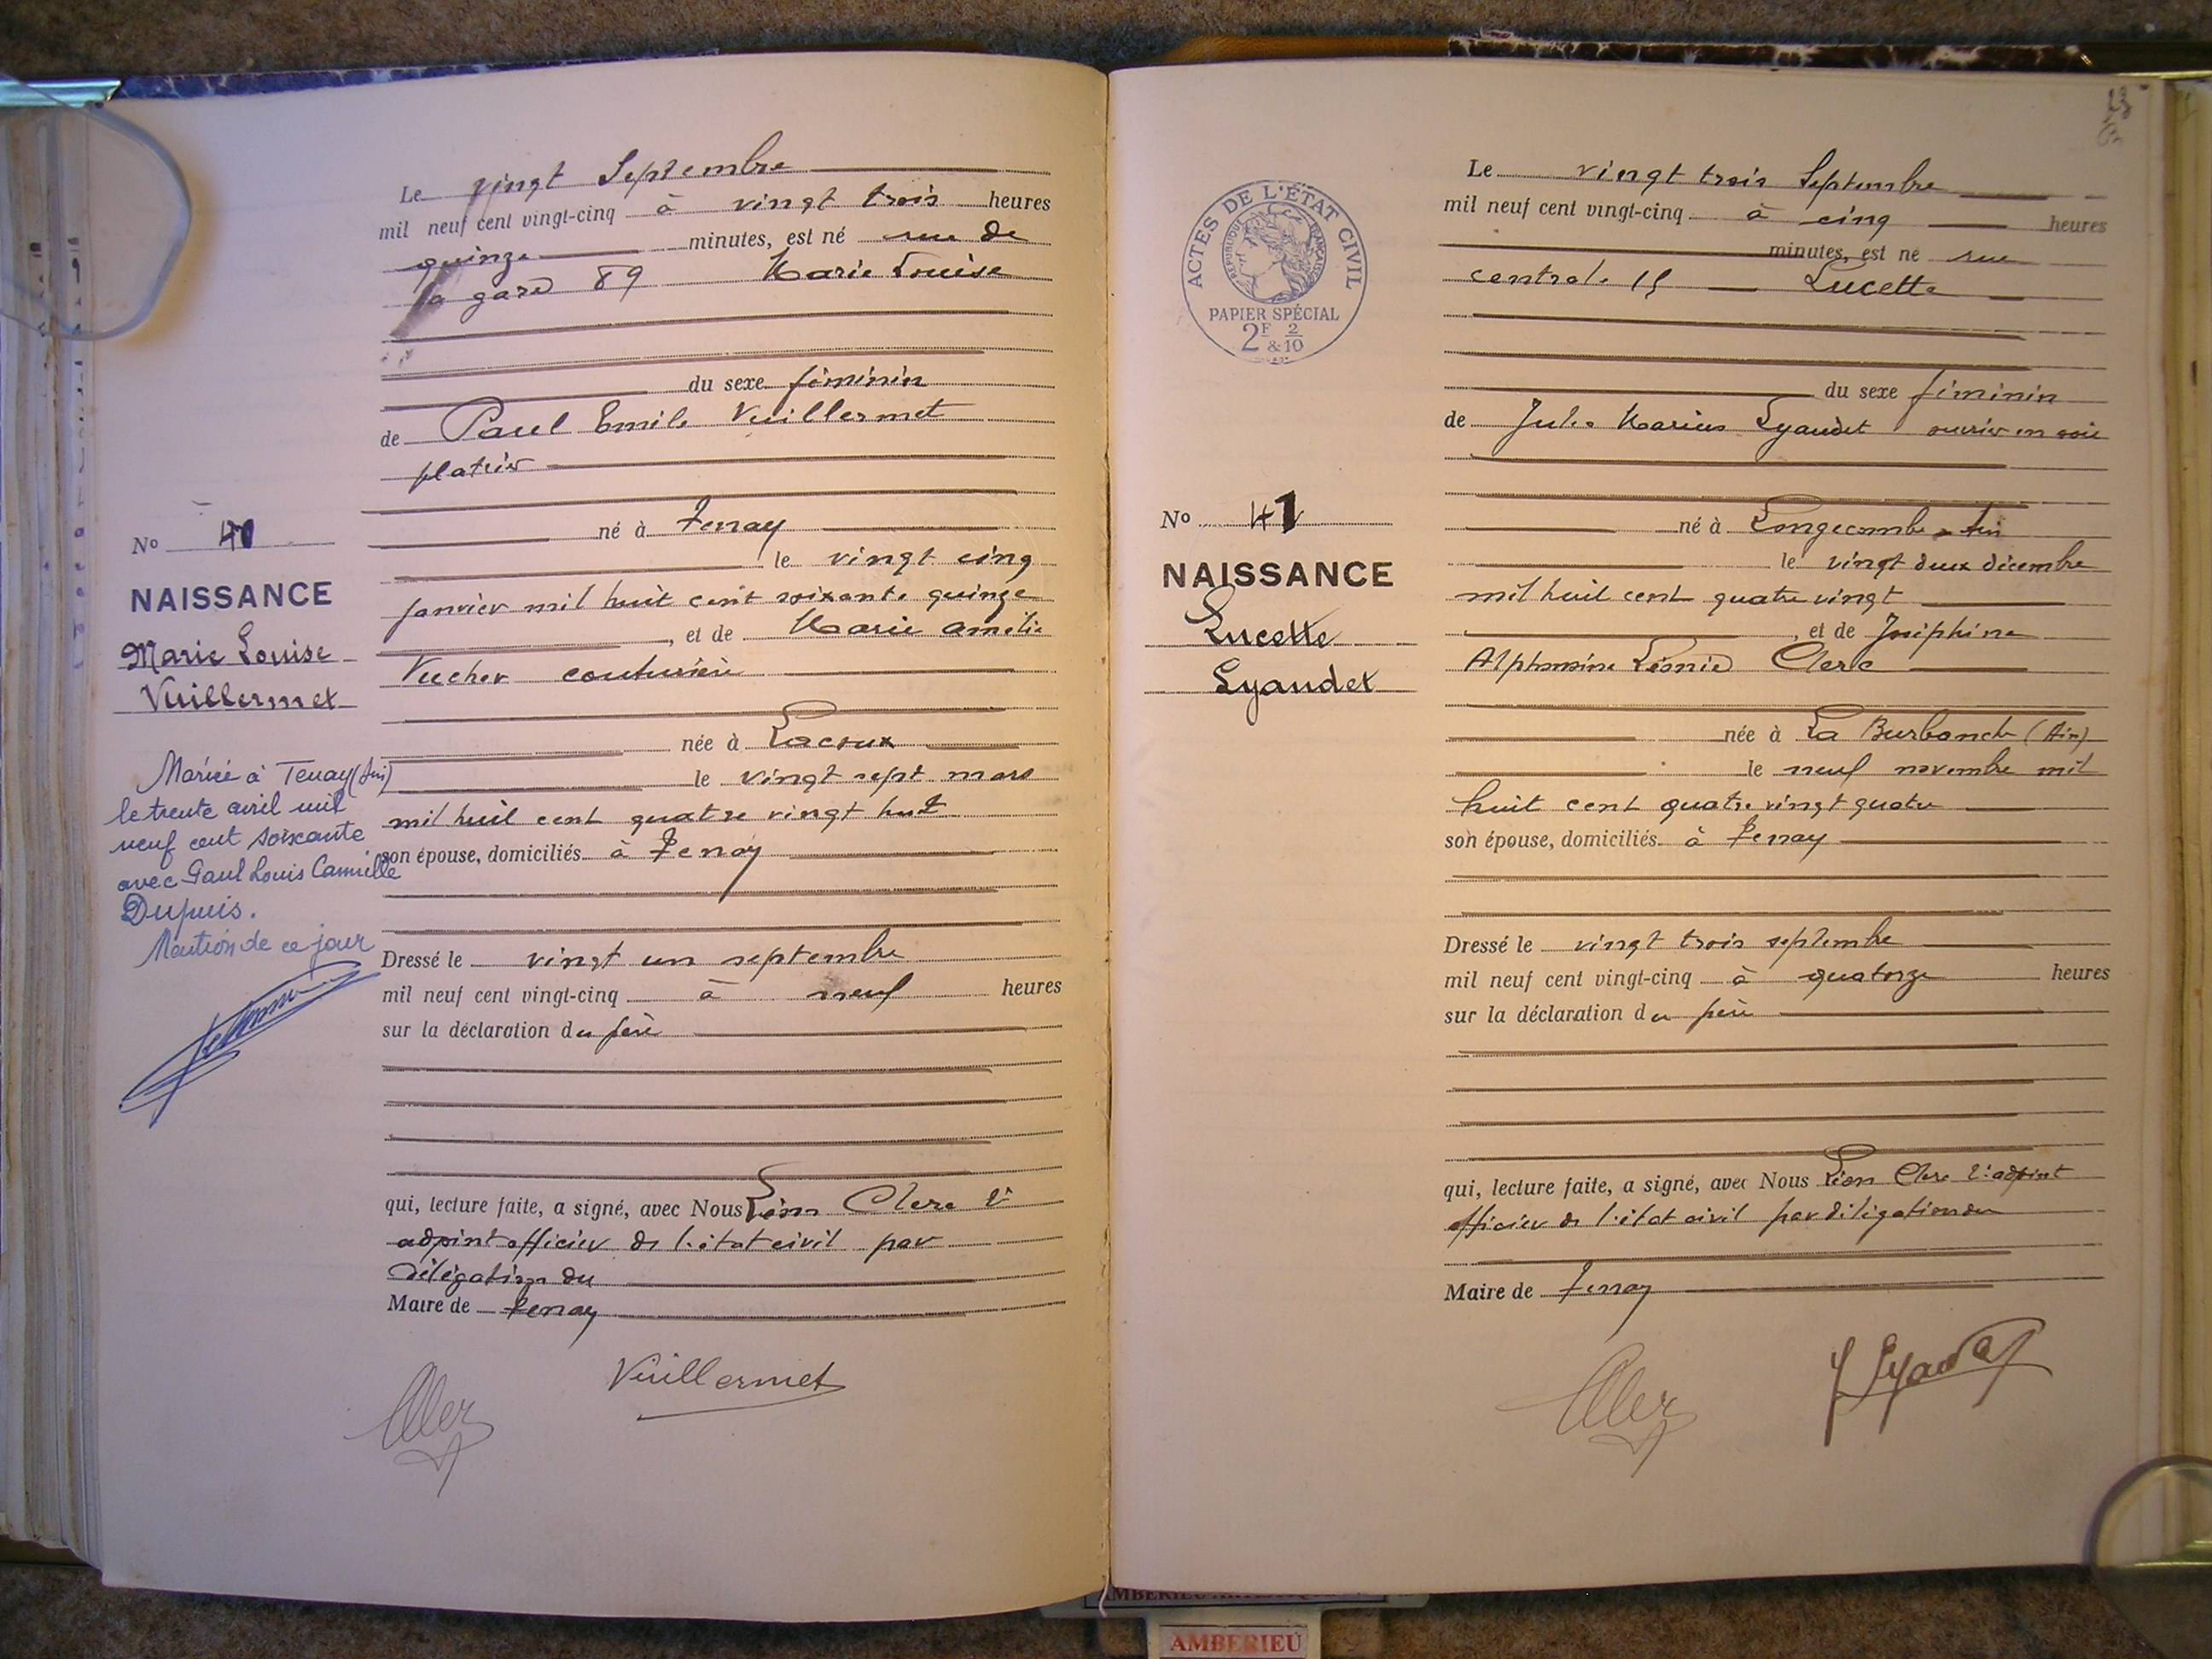 Le vingt Septembre
mil neuf cent vingt-cinq à vingt trois heures
quinze minutes, est né rue de
la gare 89 Marie Louise
du sexe féminin
de Paul Emile Vuillermet
platrier
né à Tenay
le vingt cinq
janvier mil huit cent soixante quinze
, et de Marie Amélie
Vucher couturière
née à Lacoux
le vingt sept mars
mil huit cent quatre vingt huit
son épouse, domiciliés à Tenay
Dressé le vingt un septembre
mil neuf cent vingt-cinq à neuf heures
sur la déclaration du père
qui, lecture faite, a signé, avec Nous Léon Clerc 2e
adjoint officier de l'état civil par
délégation du
Maire de Tenay
Vuillermet
No 40
NAISSANCE
Marie Louise
Vuillermet
Mariée à Tenay (Ain)
le trente avril mil
neuf cent soixante
avec Paul Louis Camille
Dupuis.
Mention de ce jour
ACTES DE L'ÉTAT CIVIL
RÉPUBLIQUE FRANÇAISE
PAPIER SPÉCIAL
2F & 2/10
No 41
NAISSANCE
Lucette
Lyaudet
Le vingt trois Septembre
mil neuf cent vingt-cinq à cinq heures
minutes, est né rue
centrale 15 Lucette
du sexe féminin
de Jules Marius Lyaudet ouvrier en soie
né à Longecombe Ain
le vingt deux décembre
mil huit cent quatre vingt
, et de Joséphine
Alphonsine Léonie Clerc
née à La Burbanche (Ain)
le neuf novembre mil
huit cent quatre vingt quatre
son épouse, domiciliés à Tenay
Dressé le vingt trois septembre
mil neuf cent vingt-cinq à quatorze heures
sur la déclaration du père
qui, lecture faite, a signé, avec Nous Léon Clerc 2e adjoint
officier de l'état civil par délégation du
Maire de Tenay
J Lyaudet
AMBERIEU